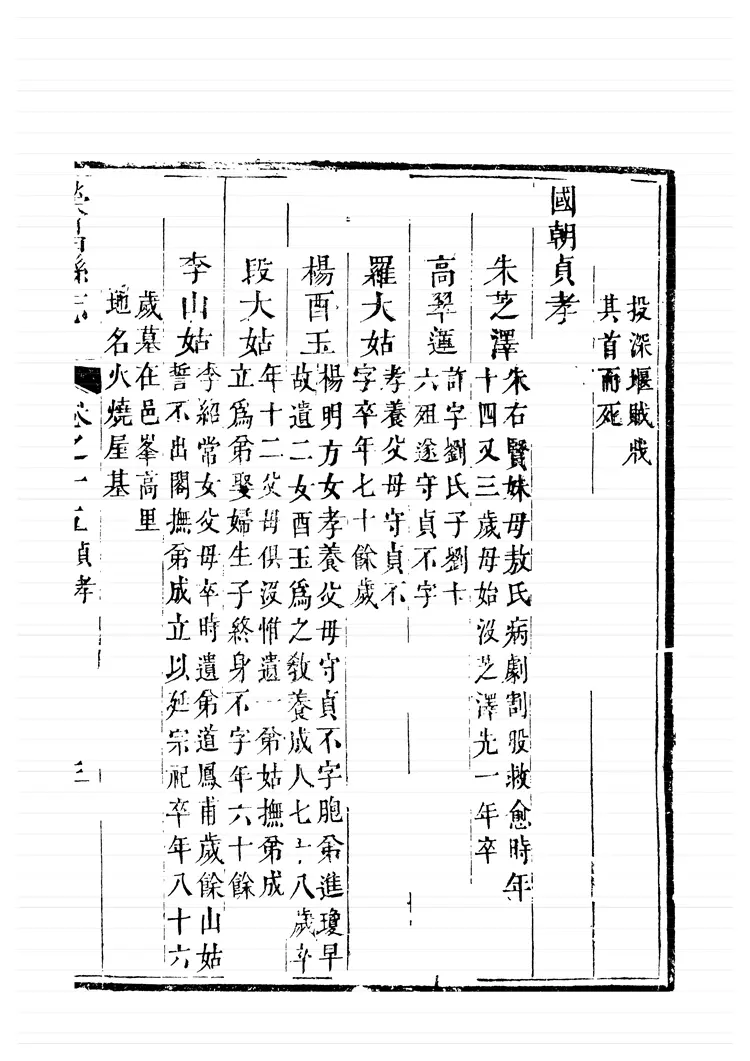 投深堰賊戕
其首而死
國朝貞孝
朱芝澤
朱右賢妹母敖氏病劇割股救愈時年
十四又三歲母始沒芝澤先一年卒
高翠蓮
許字劉氏子劉十
六殂遂守貞不字
羅大姑
孝養父母守貞不
字卒年七十餘歲
楊酉玉
楊明方女孝養父母守貞不字胞弟進瓊早
故遺二女酉玉爲之敎養成人七十八歲卒
段大姑
年十二父母俱沒惟遺一弟姑撫弟成
立爲弟娶婦生子終身不字年六十餘
李山姑
李紹常女父母卒時遺弟道鳳甫歲餘山姑
誓不出閣撫弟成立以延宗祀卒年八十六
歲墓在邑峯高里
地名火燒屋基
榮昌縣志
卷之十五貞孝
三